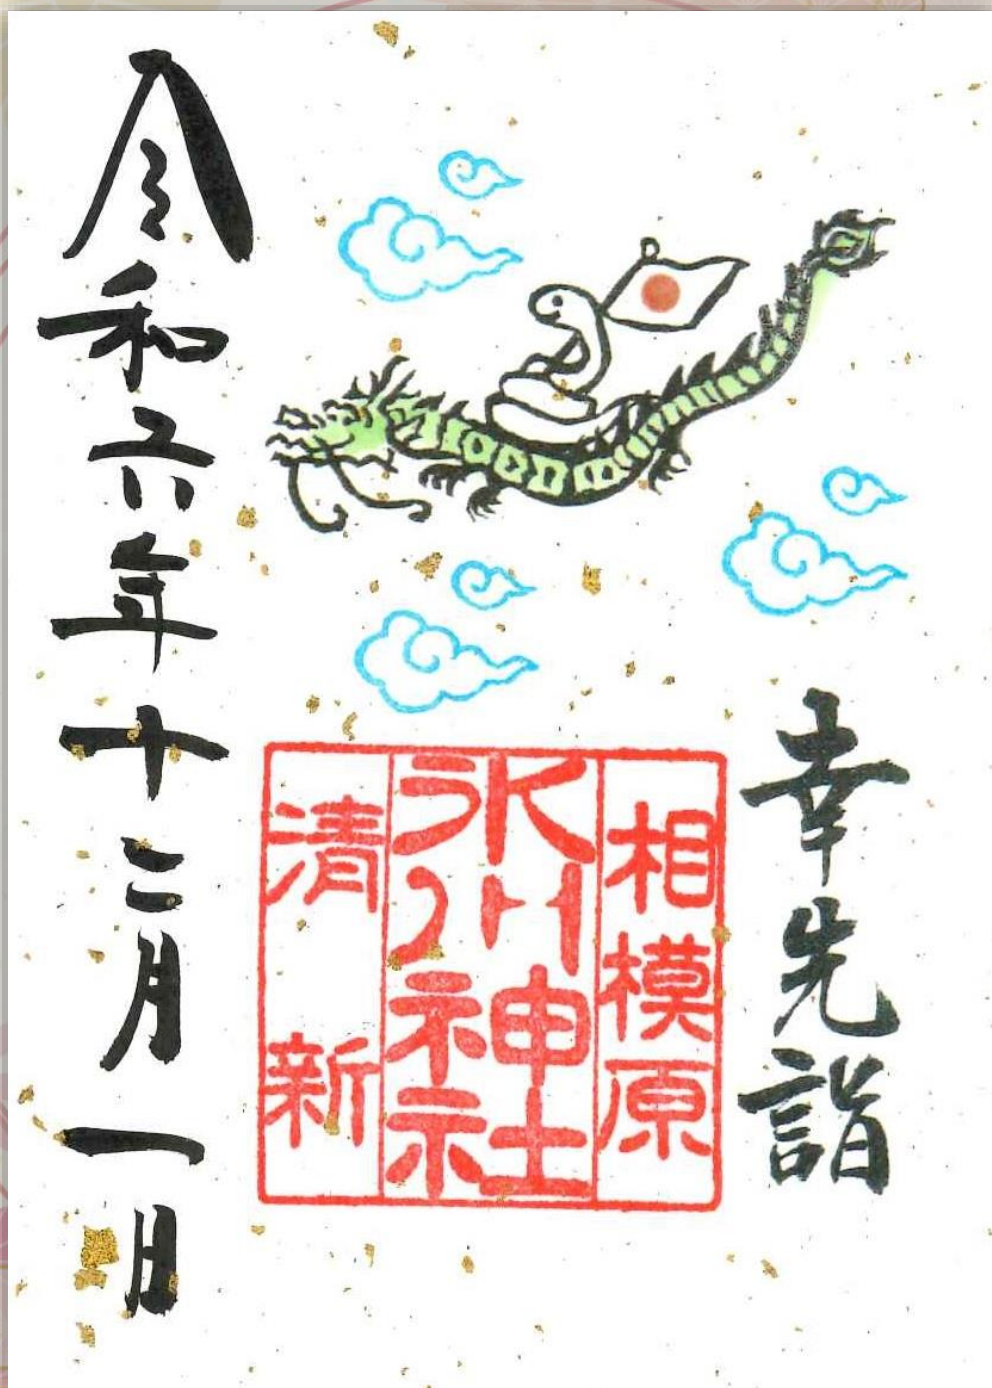 幸先詣
相模原
氷川神社
清新
令和六年十二月一日